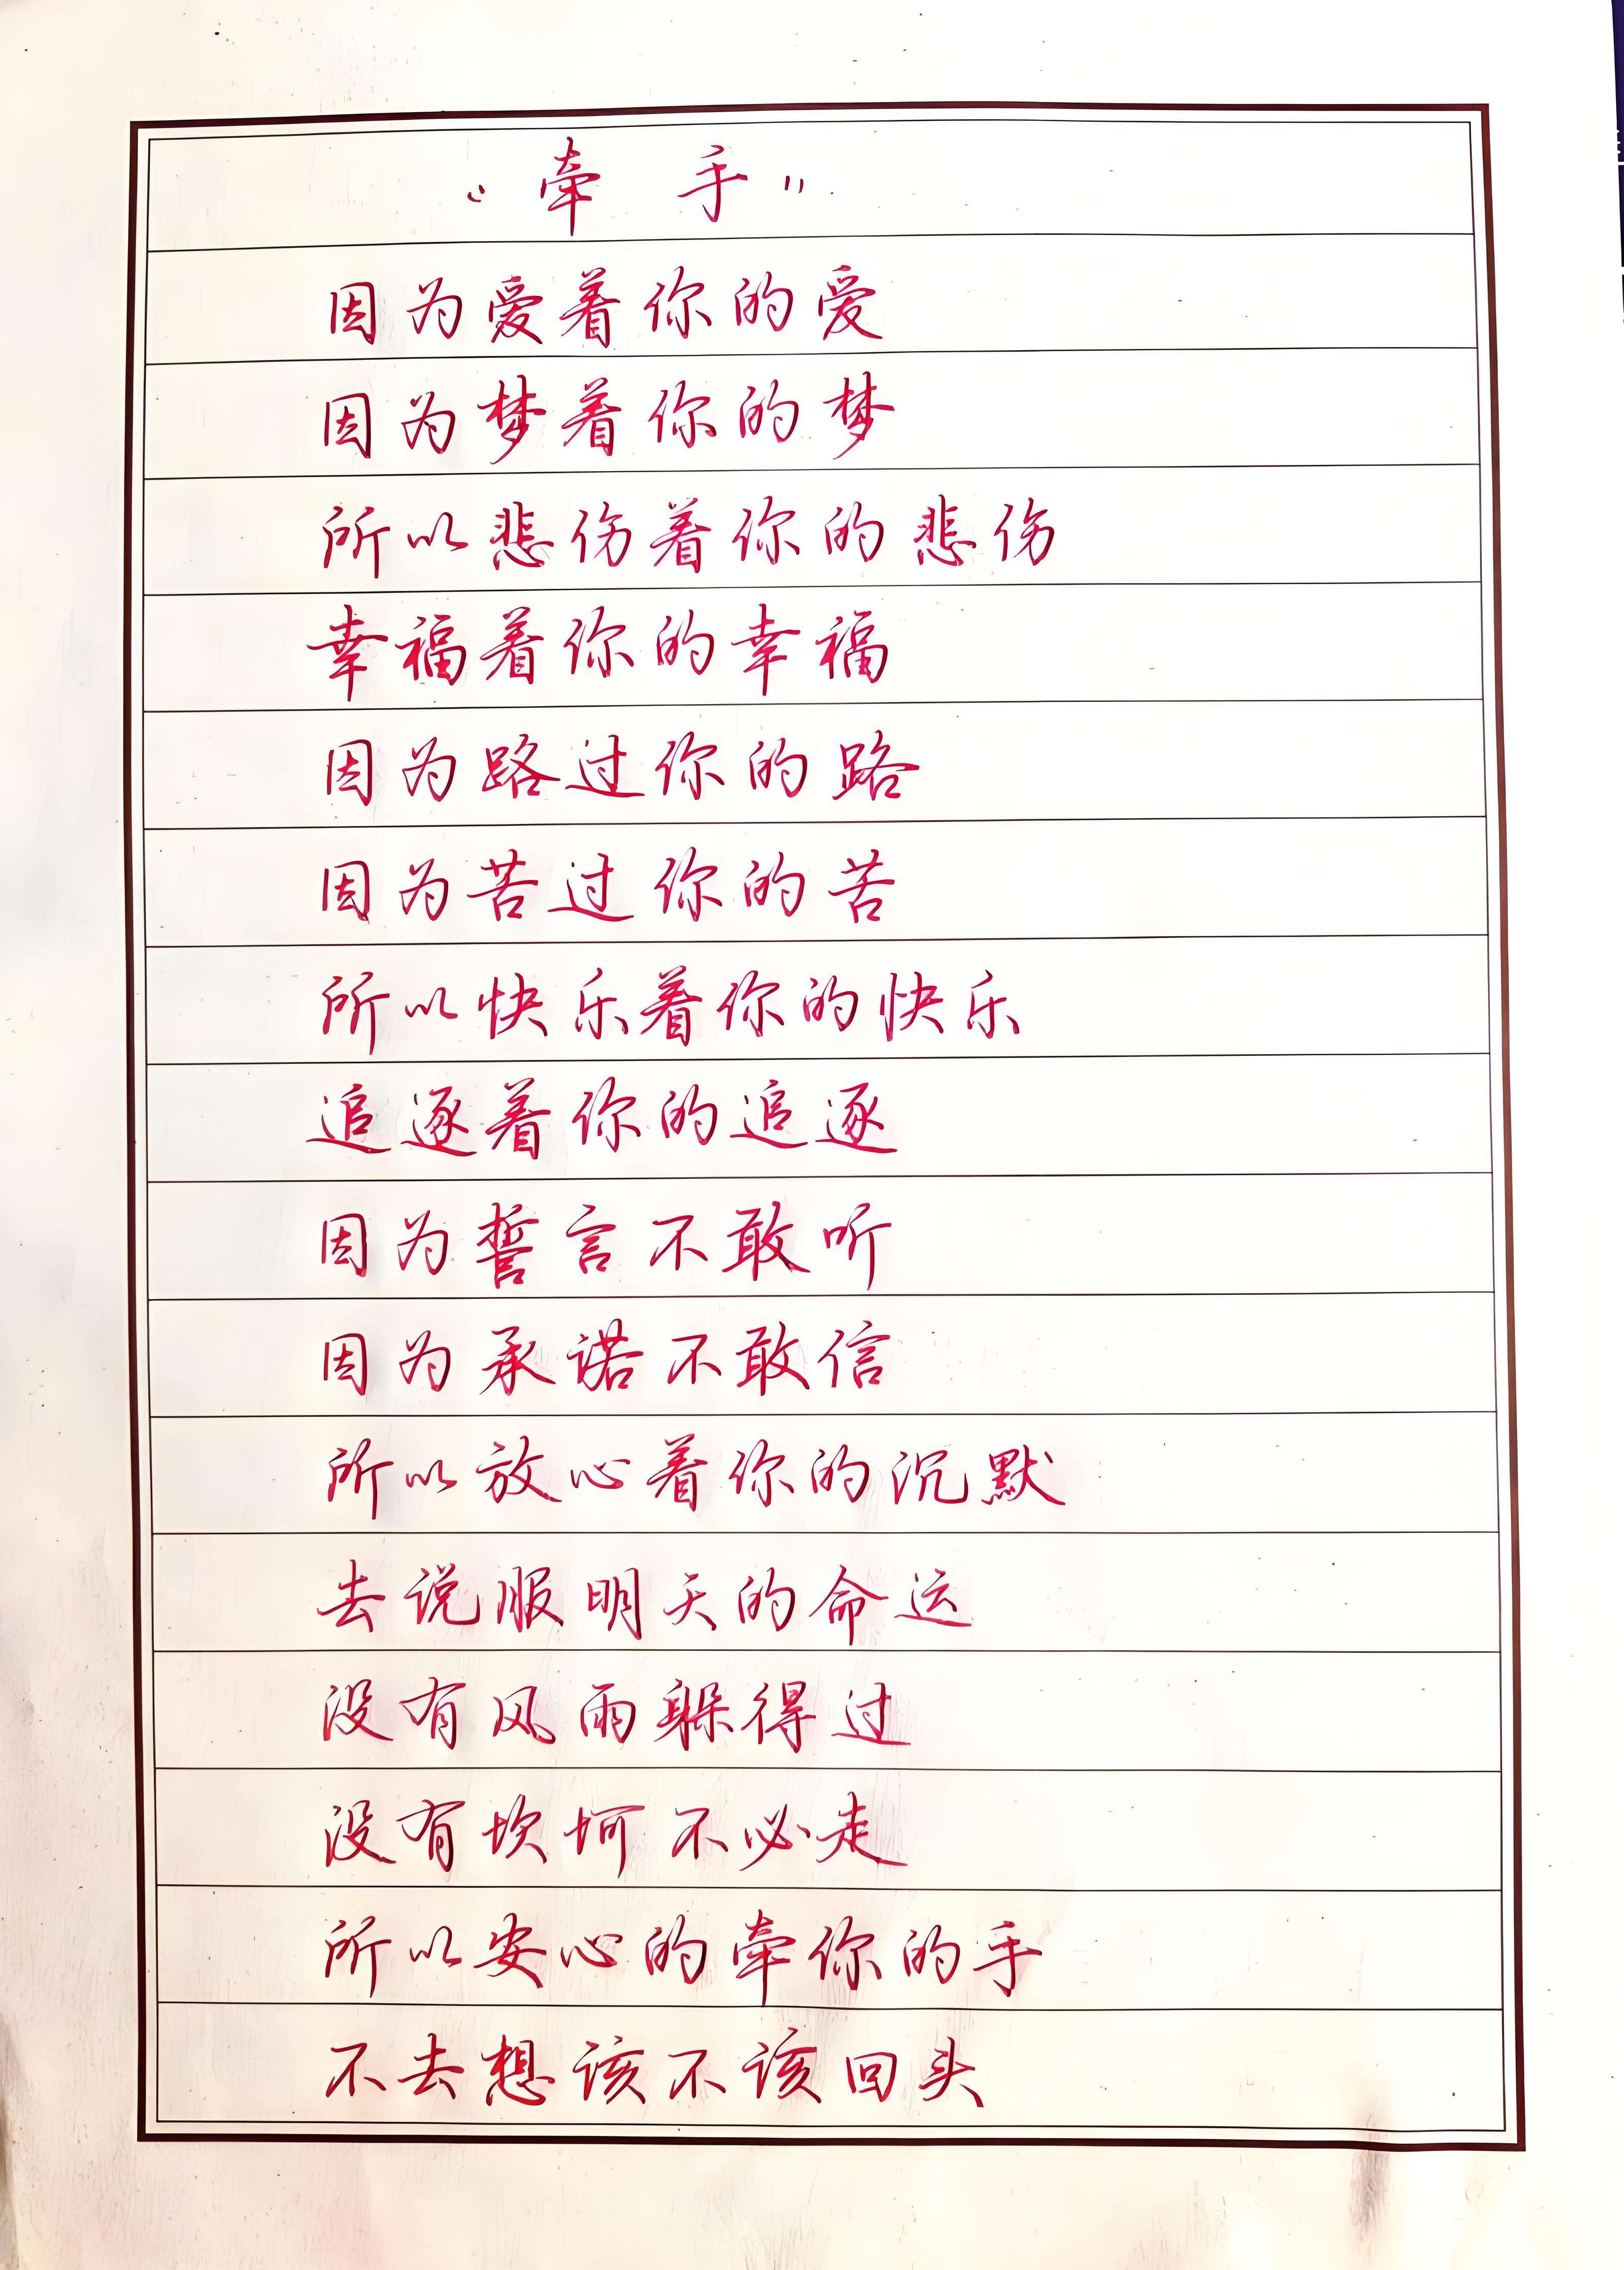 “牵 手”
因为爱着你的爱
因为梦着你的梦
所以悲伤着你的悲伤
幸福着你的幸福
因为路过你的路
因为苦过你的苦
所以快乐着你的快乐
追逐着你的追逐
因为誓言不敢听
因为承诺不敢信
所以放心着你的沉默
去说服明天的命运
没有风雨躲得过
没有坎坷不必走
所以安心的牵你的手
不去想该不该回头